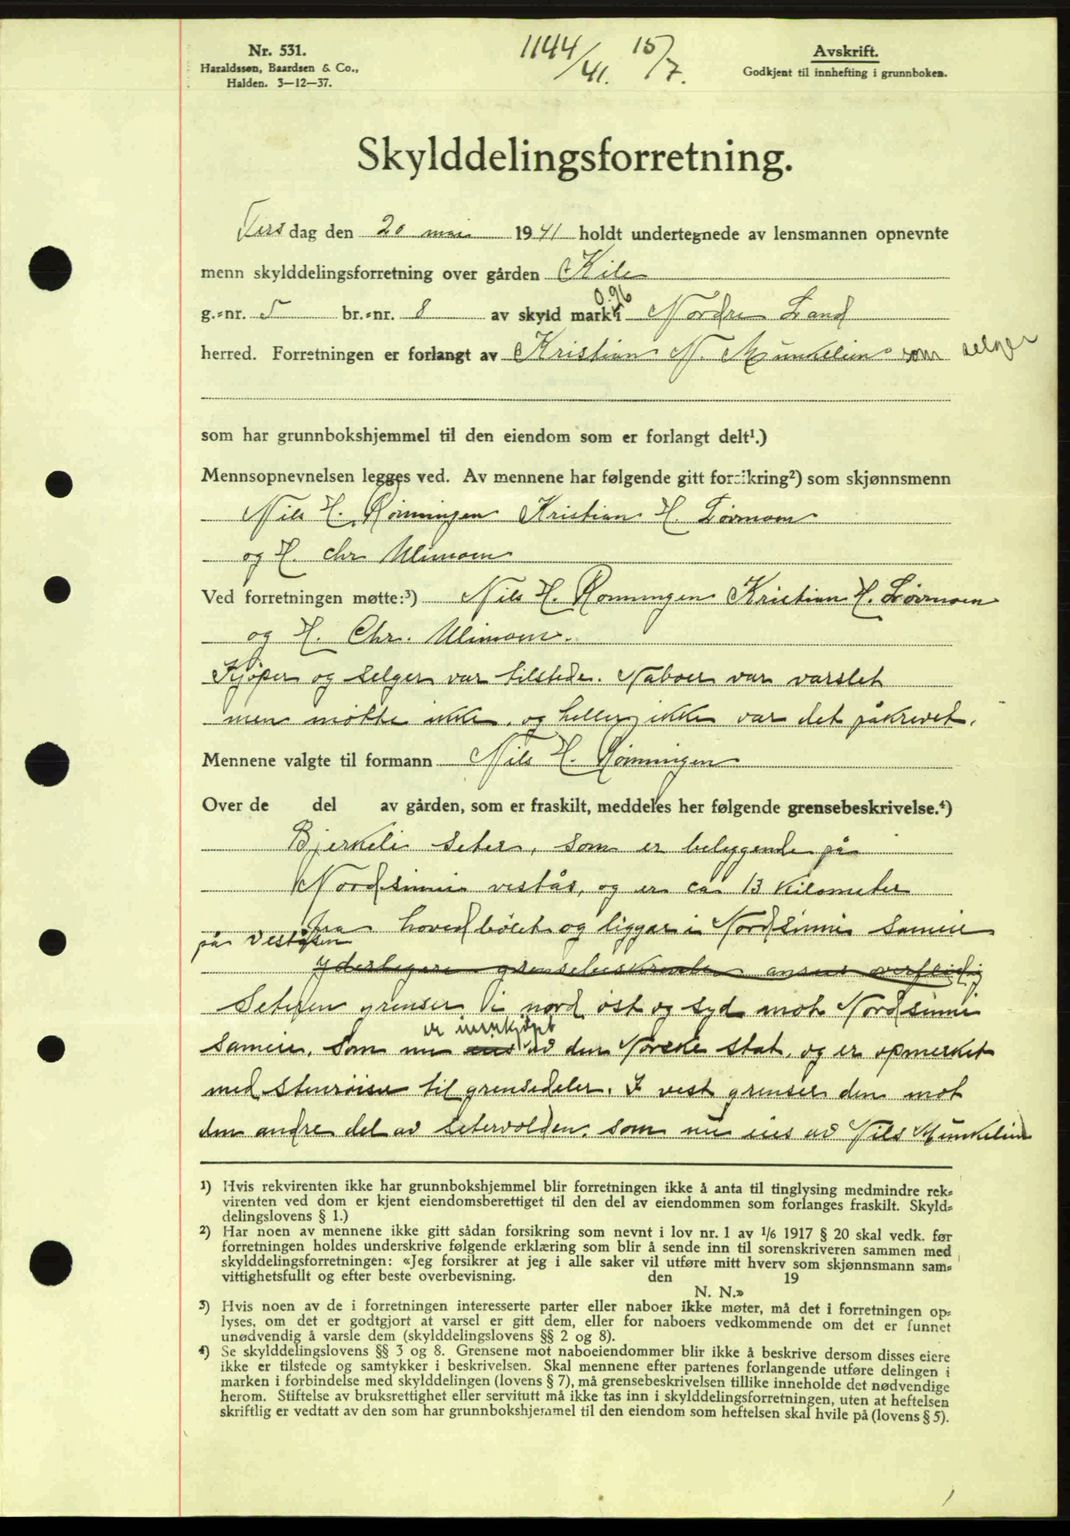 Nr. 531.
Haraldssen, Baardsen & Co.,
Halden. 3—12—37.
1144/41. 15/7.
Avskrift.
Godkjent til innhefting i grunnboken.
Skylddelingsforretning.
Tirsdag den 20 mai 1941 holdt undertegnede av lensmannen opnevnte
menn skylddelingsforretning over gården Kile
0.96
g.-nr. 5 br.-nr. 8 av skyld mark i Nordre Land
herred. Forretningen er forlangt av Kristian N. Munkelien som selger
som har grunnbokshjemmel til den eiendom som er forlangt delt¹.)
Mennsopnevnelsen legges ved. Av mennene har følgende gitt forsikring²) som skjønnsmenn
Nils H. Rønningen Kristian H. Løvmoen
og H. Chr Ulimoen
Ved forretningen møtte:³) Nils H. Rønningen Kristian H. Løvmoen
og H. Chr. Ulimoen.
Kjøper og selger var tilstede. Naboer var varslet
men møtte ikke, og heller ikke var det påkrevet.
Mennene valgte til formann Nils H. Rønningen
Over de del av gården, som er fraskilt, meddeles her følgende grensebeskrivelse.⁴)
Bjerkeli seter, som er beliggende på
Nordsinni vestås, og er ca 13 kilometer
fra hovedbølet og liggar i Nordsinni sameie
på Veståsen
Yderligere grensebeskrivelse ansees overflødig
Seteren grenser i nord øst og syd mot Nordsinni
er innkjøpt
sameie, som nu eies av den Norske stat, og er opmerket
med stenrøiser til grensedeler. I vest grenser den mot
den andre del av setervolden, som nu eies av Nils Munkelien
¹) Hvis rekvirenten ikke har grunnbokshjemmel blir forretningen ikke å anta til tinglysing medmindre rek-
virenten ved dom er kjent eiendomsberettiget til den del av eiendommen som forlanges fraskilt. Skyld-
delingslovens § 1.)
²) Har noen av mennene ikke gitt sådan forsikring som nevnt i lov nr. 1 av 1/6 1917 § 20 skal vedk. før
forretningen holdes underskrive følgende erklæring som blir å sende inn til sorenskriveren sammen med
skylddelingsforretningen: «Jeg forsikrer at jeg i alle saker vil utføre mitt hverv som skjønnsmann sam-
vittighetsfullt og efter beste overbevisning. den 19
N. N.»
³) Hvis noen av de i forretningen interesserte parter eller naboer ikke møter, må det i forretningen op-
lyses, om det er godtgjort at varsel er gitt dem, eller for naboers vedkommende om det er funnet
unødvendig å varsle dem (skylddelingslovens §§ 2 og 8).
⁴) Se skylddelingslovens §§ 3 og 8. Grensene mot naboeiendommer blir ikke å beskrive dersom disses eiere
ikke er tilstede og samtykker i beskrivelsen. Skal mennene efter partenes forlangende utføre delingen i
marken i forbindelse med skylddelingen (lovens § 7), må grensebeskrivelsen tillike inneholde det nødvendige
herom. Stiftelse av bruksrettighet eller servitutt må ikke tas inn i skylddelingsforretningen, uten at heftelsen
skriftlig er vedtatt av den som har grunnbokshjemmel til den eiendom som heftelsen skal hvile på (lovens § 5).